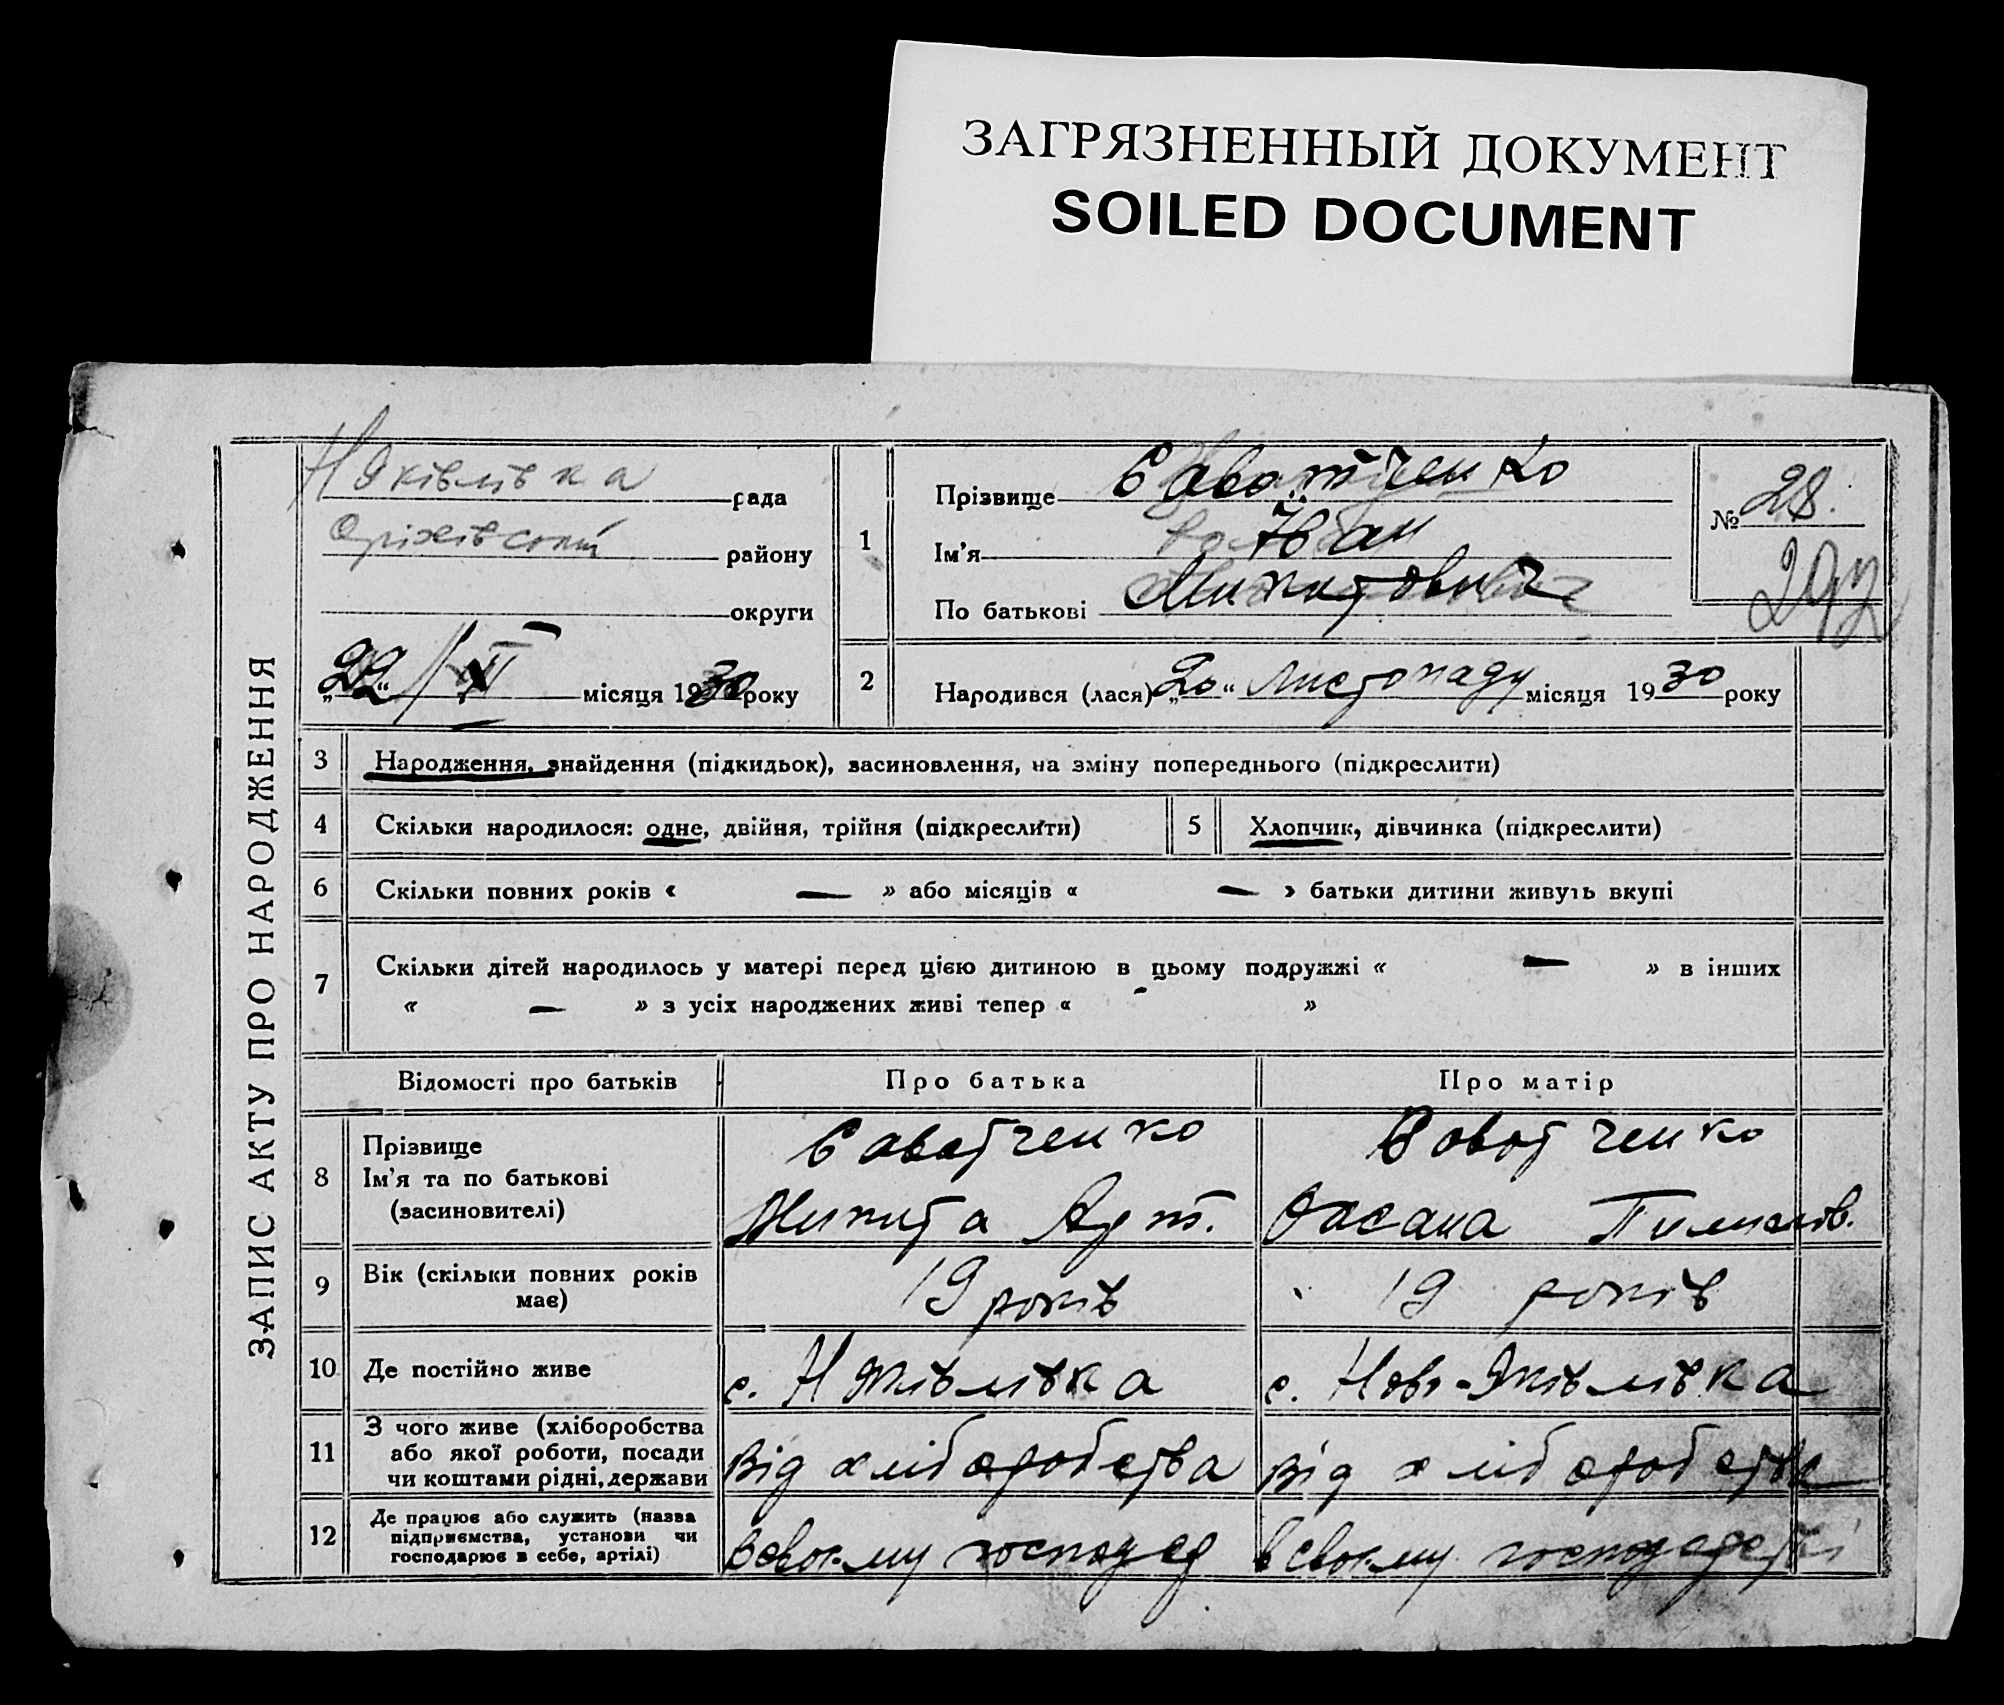 ЗАГРЯЗНЕННЫЙ ДОКУМЕНТ
SOILED DOCUMENT
ЗАПИС АКТУ ПРО НАРОДЖЕННЯ
Н Яківлівка рада
Оріхівський району
округи
„22“ / XI місяця 1930 року
1
Прізвище Саватченко
Ім'я Іван
По батькові Микитович
№ 28.
292
2 Народився (лася) „20“ листопаду місяця 1930 року
3 Народження, знайдення (підкидьок), засиновлення, на зміну попереднього (підкреслити)
4 Скільки народилося: одне, двійня, трійня (підкреслити) 5 Хлопчик, дівчинка (підкреслити)
6 Скільки повних років « — » або місяців « — » батьки дитини живуть вкупі
7 Скільки дітей народилось у матері перед цією дитиною в цьому подружжі « — » в інших
« — » з усіх народжених живі тепер « - »
Відомості про батьків Про батька Про матір
8 Прізвище
Ім'я та по батькові
(засиновителі)
Саватченко
Микита Арт.
Саватченко
Оксана
9 Вік (скільки повних років
має)
19 років 19 років
10 Де постійно живе с. Н Яківлівка с. Ново-Яківлівка
11 З чого живе (хліборобства
або якої роботи, посади
чи коштами рідні, держави
від хліборобства від хліборобства
12 Де працює або служить (назва
підприємства, установи чи
господарює в себе, артілі)
в своєму господар в своєму господарстві